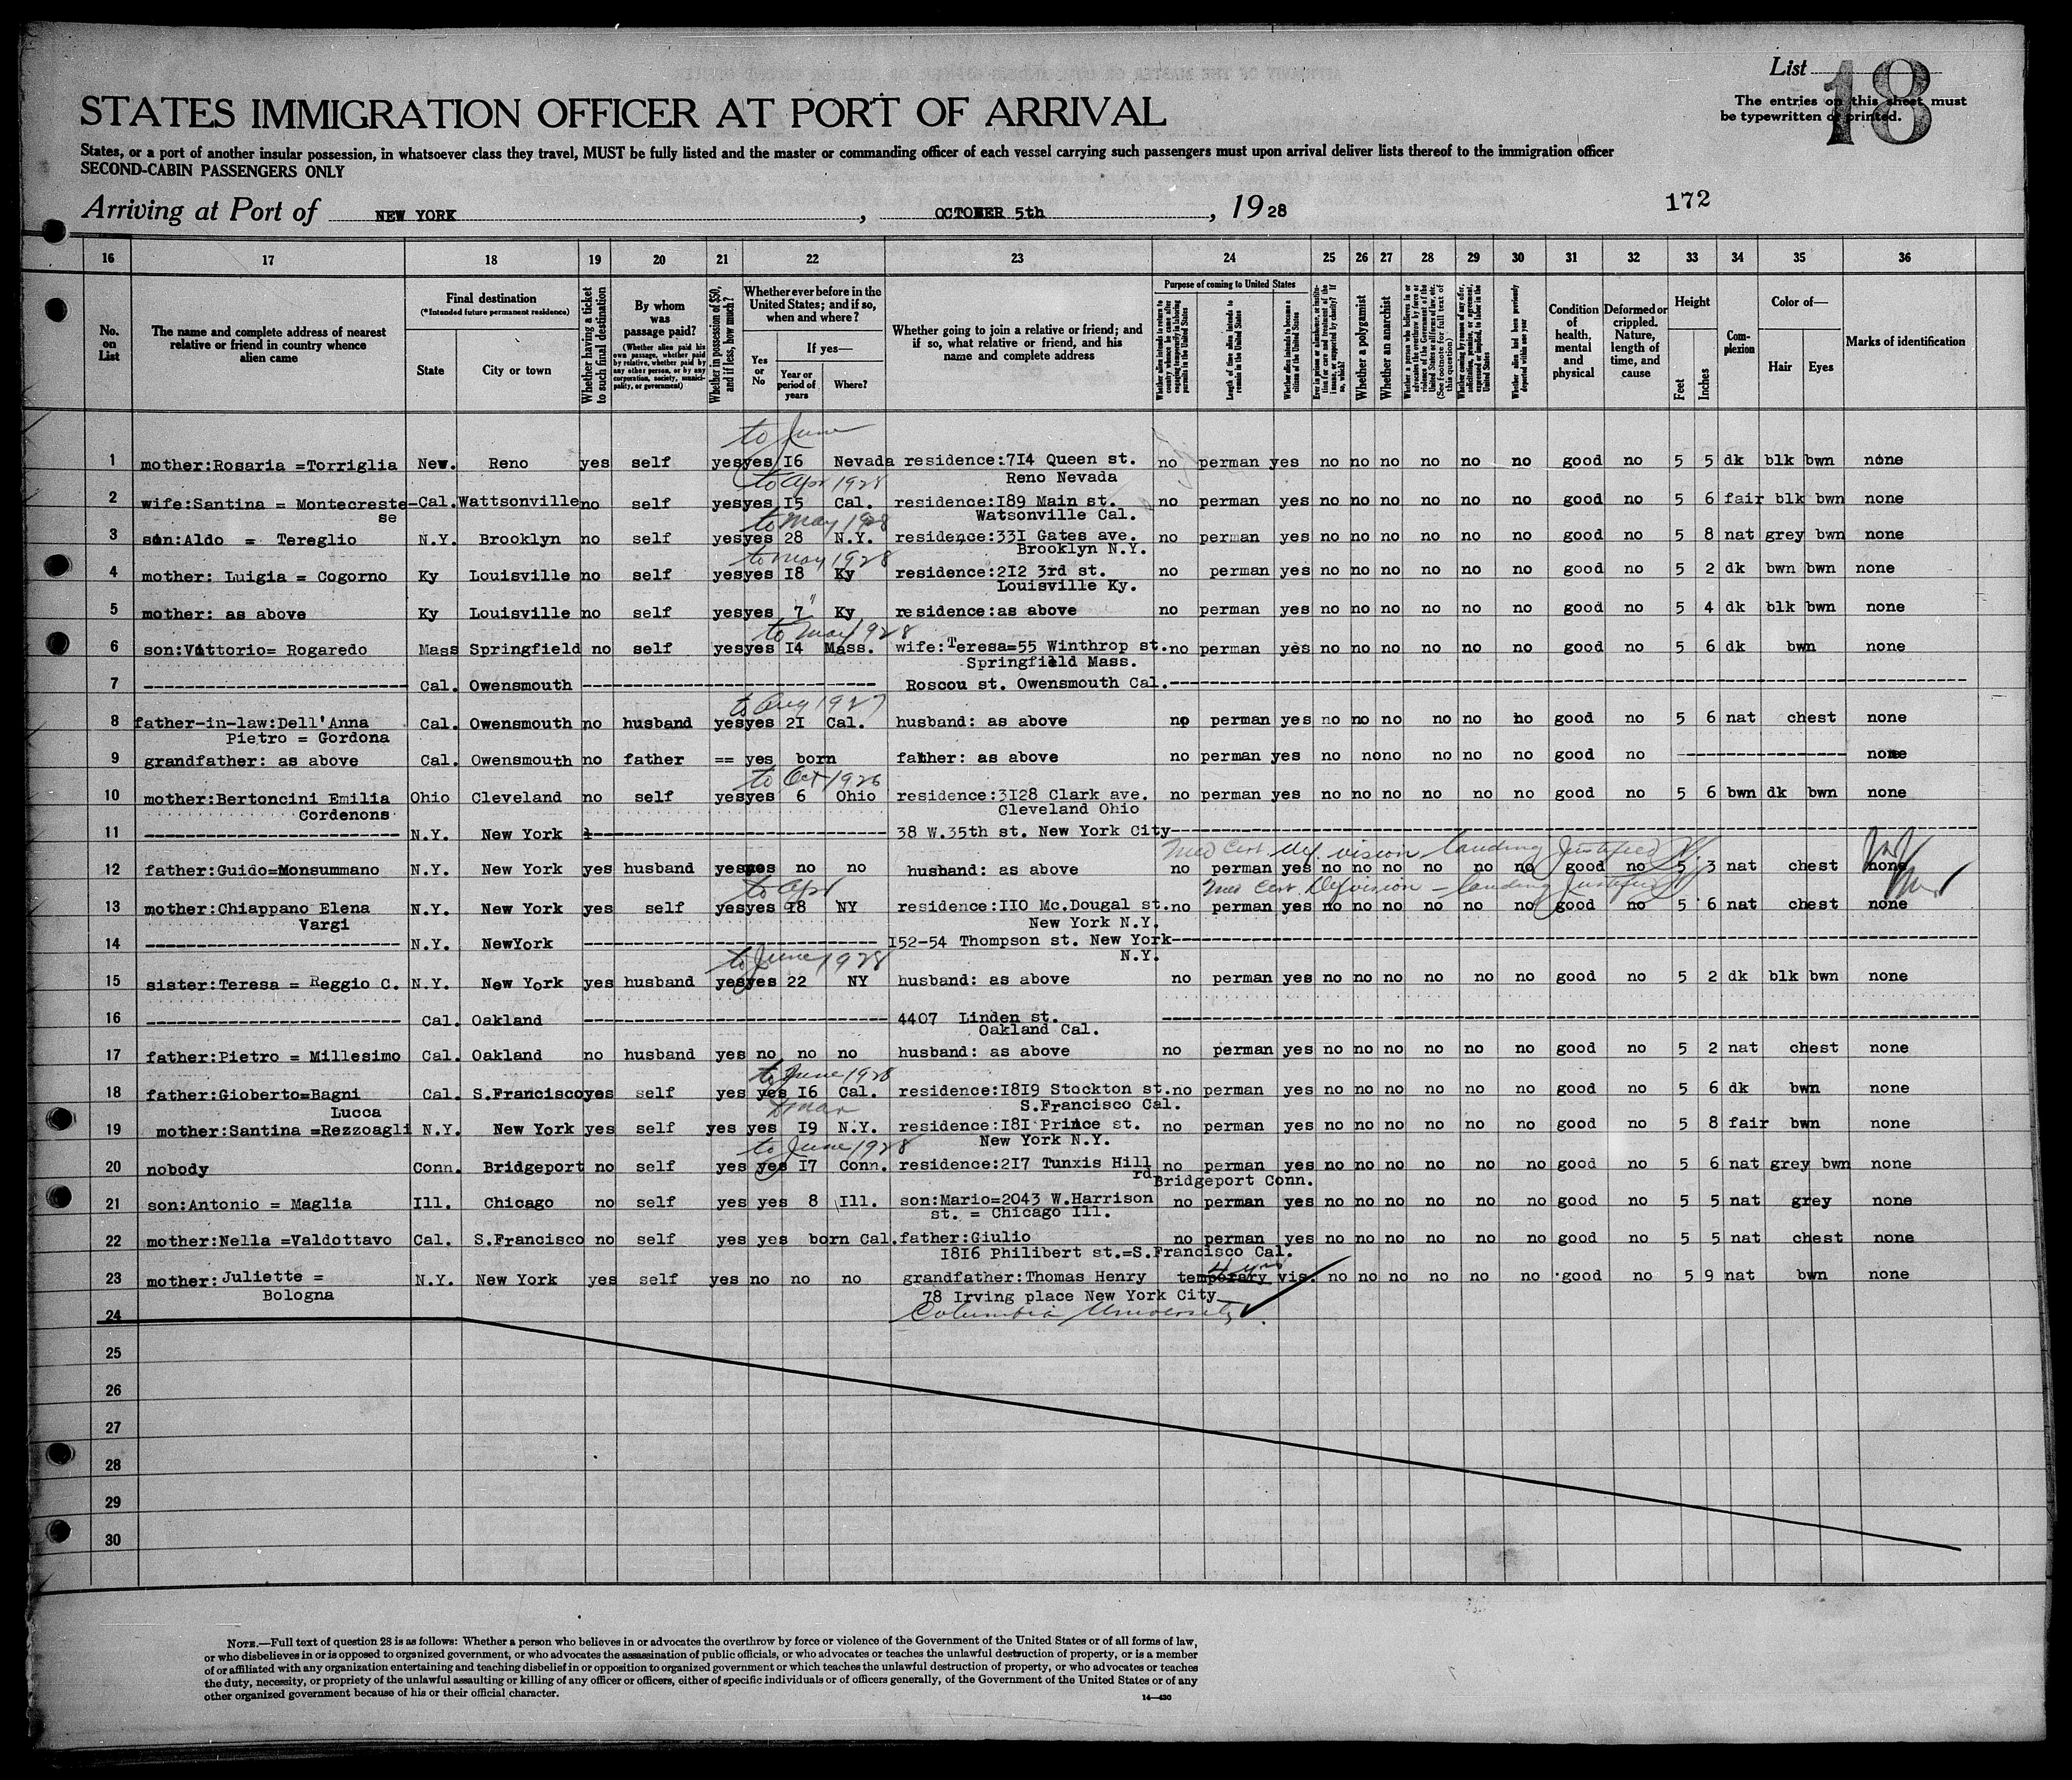 List 18
The entries on this sheet must
be typewritten or printed.
STATES IMMIGRATION OFFICER AT PORT OF ARRIVAL
States, or a port of another insular possession, in whatsoever class they travel, MUST be fully listed and the master or commanding officer of each vessel carrying such passengers must upon arrival deliver lists thereof to the immigration officer
SECOND-CABIN PASSENGERS ONLY
172
Arriving at Port of NEW YORK, OCTOBER 5th, 1928
16 17 18 19 20 21 22 23 24 25 26 27 28 29 30 31 32 33 34 35 36
No. on List
The name and complete address of nearest relative or friend in country whence alien came
Final destination
(*Intended future permanent residence)
State
City or town
Whether having a ticket to such final destination
By whom was passage paid?
(Whether alien paid his own passage, whether paid by relative, whether paid by any other person, or by any corporation, society, municipality, or government)
Whether in possession of $50, and if less, how much?
Whether ever before in the United States; and if so, when and where?
Yes or No
If yes—
Year or period of years
Where?
Whether going to join a relative or friend; and if so, what relative or friend, and his name and complete address
Purpose of coming to United States
Length of time alien intends to remain in the United States
Whether alien intends to become a citizen of the United States
Whether a polygamist
Whether an anarchist
Condition of health, mental and physical
Deformed or crippled. Nature, length of time, and cause
Height
Feet
Inches
Complexion
Color of—
Hair
Eyes
Marks of identification
to June
1 mother:Rosaria =Torriglia New. Reno yes self yes yes 16 Nevada residence:714 Queen st. no perman yes no no no no no no good no 5 5 dk blk bwn none
Reno Nevada
to Apr 1928
2 wife:Santina = Montecreste- Cal. Wattsonville no self yes yes 15 Cal. residence:189 Main st. no perman yes no no no no no no good no 5 6 fair blk bwn none
se Watsonville Cal.
to May 1928
3 son:Aldo = Tereglio N.Y. Brooklyn no self yes yes 28 N.Y. residence:331 Gates ave. no perman yes no no no no no no good no 5 8 nat grey bwn none
Brooklyn N.Y.
to May 1928
4 mother: Luigia = Cogorno Ky Louisville no self yes yes 18 Ky residence:212 3rd st. no perman yes no no no no no no good no 5 2 dk bwn bwn none
Louisville Ky.
"
5 mother: as above Ky Louisville no self yes yes 7 Ky residence:as above no perman yes no no no no no no good no 5 4 dk blk bwn none
to May 1928
6 son:Vittorio= Rogaredo Mass Springfield no self yes yes 14 Mass. wife:Teresa=55 Winthrop st. no perman yes no no no no no no good no 5 6 dk bwn none
Springfield Mass.
7 ---------- Cal. Owensmouth ---------- Roscou st. Owensmouth Cal. ----------
to Aug 1927
8 father-in-law:Dell'Anna Cal. Owensmouth no husband yes yes 21 Cal. husband: as above no perman yes no no no no no no good no 5 6 nat chest none
Pietro = Gordona
9 grandfather: as above Cal. Owensmouth no father == yes born father: as above no perman yes no no no no no no good no ---------- none
to Oct 1926
10 mother:Bertoncini Emilia Ohio Cleveland no self yes yes 6 Ohio residence:3128 Clark ave. no perman yes no no no no no no good no 5 6 bwn dk bwn none
Cordenons Cleveland Ohio
11 ---------- N.Y. New York ---------- 38 W.35th st. New York City ----------
Med Cert. def. vision landing Justified
12 father:Guido=Monsummano N.Y. New York yes husband yes no no husband: as above no perman yes no no no no no no good no 5 3 nat chest none
to Apr Med Cert. Def vision - landing Justified
13 mother:Chiappano Elena N.Y. New York yes self yes yes 18 NY residence:110 Mc.Dougal st. no perman yes no no no no no no good no 5 6 nat chest none
Vargi New York N.Y.
14 ---------- N.Y. NewYork ---------- 152-54 Thompson st. New York ----------
N.Y.
to June 1928
15 sister:Teresa = Reggio C. N.Y. New York yes husband yes yes 22 NY husband: as above no perman yes no no no no no no good no 5 2 dk blk bwn none
16 ---------- Cal. Oakland ---------- 4407 Linden st. ----------
Oakland Cal.
17 father:Pietro = Millesimo Cal. Oakland no husband yes no no no husband: as above no perman yes no no no no no no good no 5 2 nat chest none
to June 1928
18 father:Gioberto=Bagni Cal. S.Francisco yes self yes yes 16 Cal. residence:1819 Stockton st. no perman yes no no no no no no good no 5 6 dk bwn none
Lucca S.Francisco Cal.
to Mar
19 mother:Santina =Rezzoagli N.Y. New York yes self yes yes 19 N.Y. residence:181 Prince st. no perman yes no no no no no no good no 5 8 fair bwn none
New York N.Y.
to June 1928
20 nobody Conn. Bridgeport no self yes yes 17 Conn. residence:217 Tunxis Hill no perman yes no no no no no no good no 5 6 nat grey bwn none
rd Bridgeport Conn.
21 son:Antonio = Maglia Ill. Chicago no self yes yes 8 Ill. son:Mario=2043 W.Harrison no perman yes no no no no no no good no 5 5 nat grey none
st. = Chicago Ill.
22 mother:Nella =Valdottavo Cal. S.Francisco no self yes yes born Cal. father:Giulio no perman yes no no no no no no good no 5 5 nat chest none
1816 Philibert st.=S.Francisco Cal.
4 yrs
23 mother: Juliette = N.Y. New York yes self yes no no no grandfather:Thomas Henry temporary vis. no no no no no no good no 5 9 nat bwn none
Bologna 78 Irving place New York City
24 Columbia University
25
26
27
28
29
30
NOTE.—Full text of question 28 is as follows: Whether a person who believes in or advocates the overthrow by force or violence of the Government of the United States or of all forms of law,
or who disbelieves in or is opposed to organized government, or who advocates the assassination of public officials, or who advocates or teaches the unlawful destruction of property, or is a member
of or affiliated with any organization entertaining and teaching disbelief in or opposition to organized government or which teaches the unlawful destruction of property, or who advocates or teaches
the duty, necessity, or propriety of the unlawful assaulting or killing of any officer or officers, either of specific individuals or of officers generally, of the Government of the United States or of any
other organized government because of his or their official character.
14—430